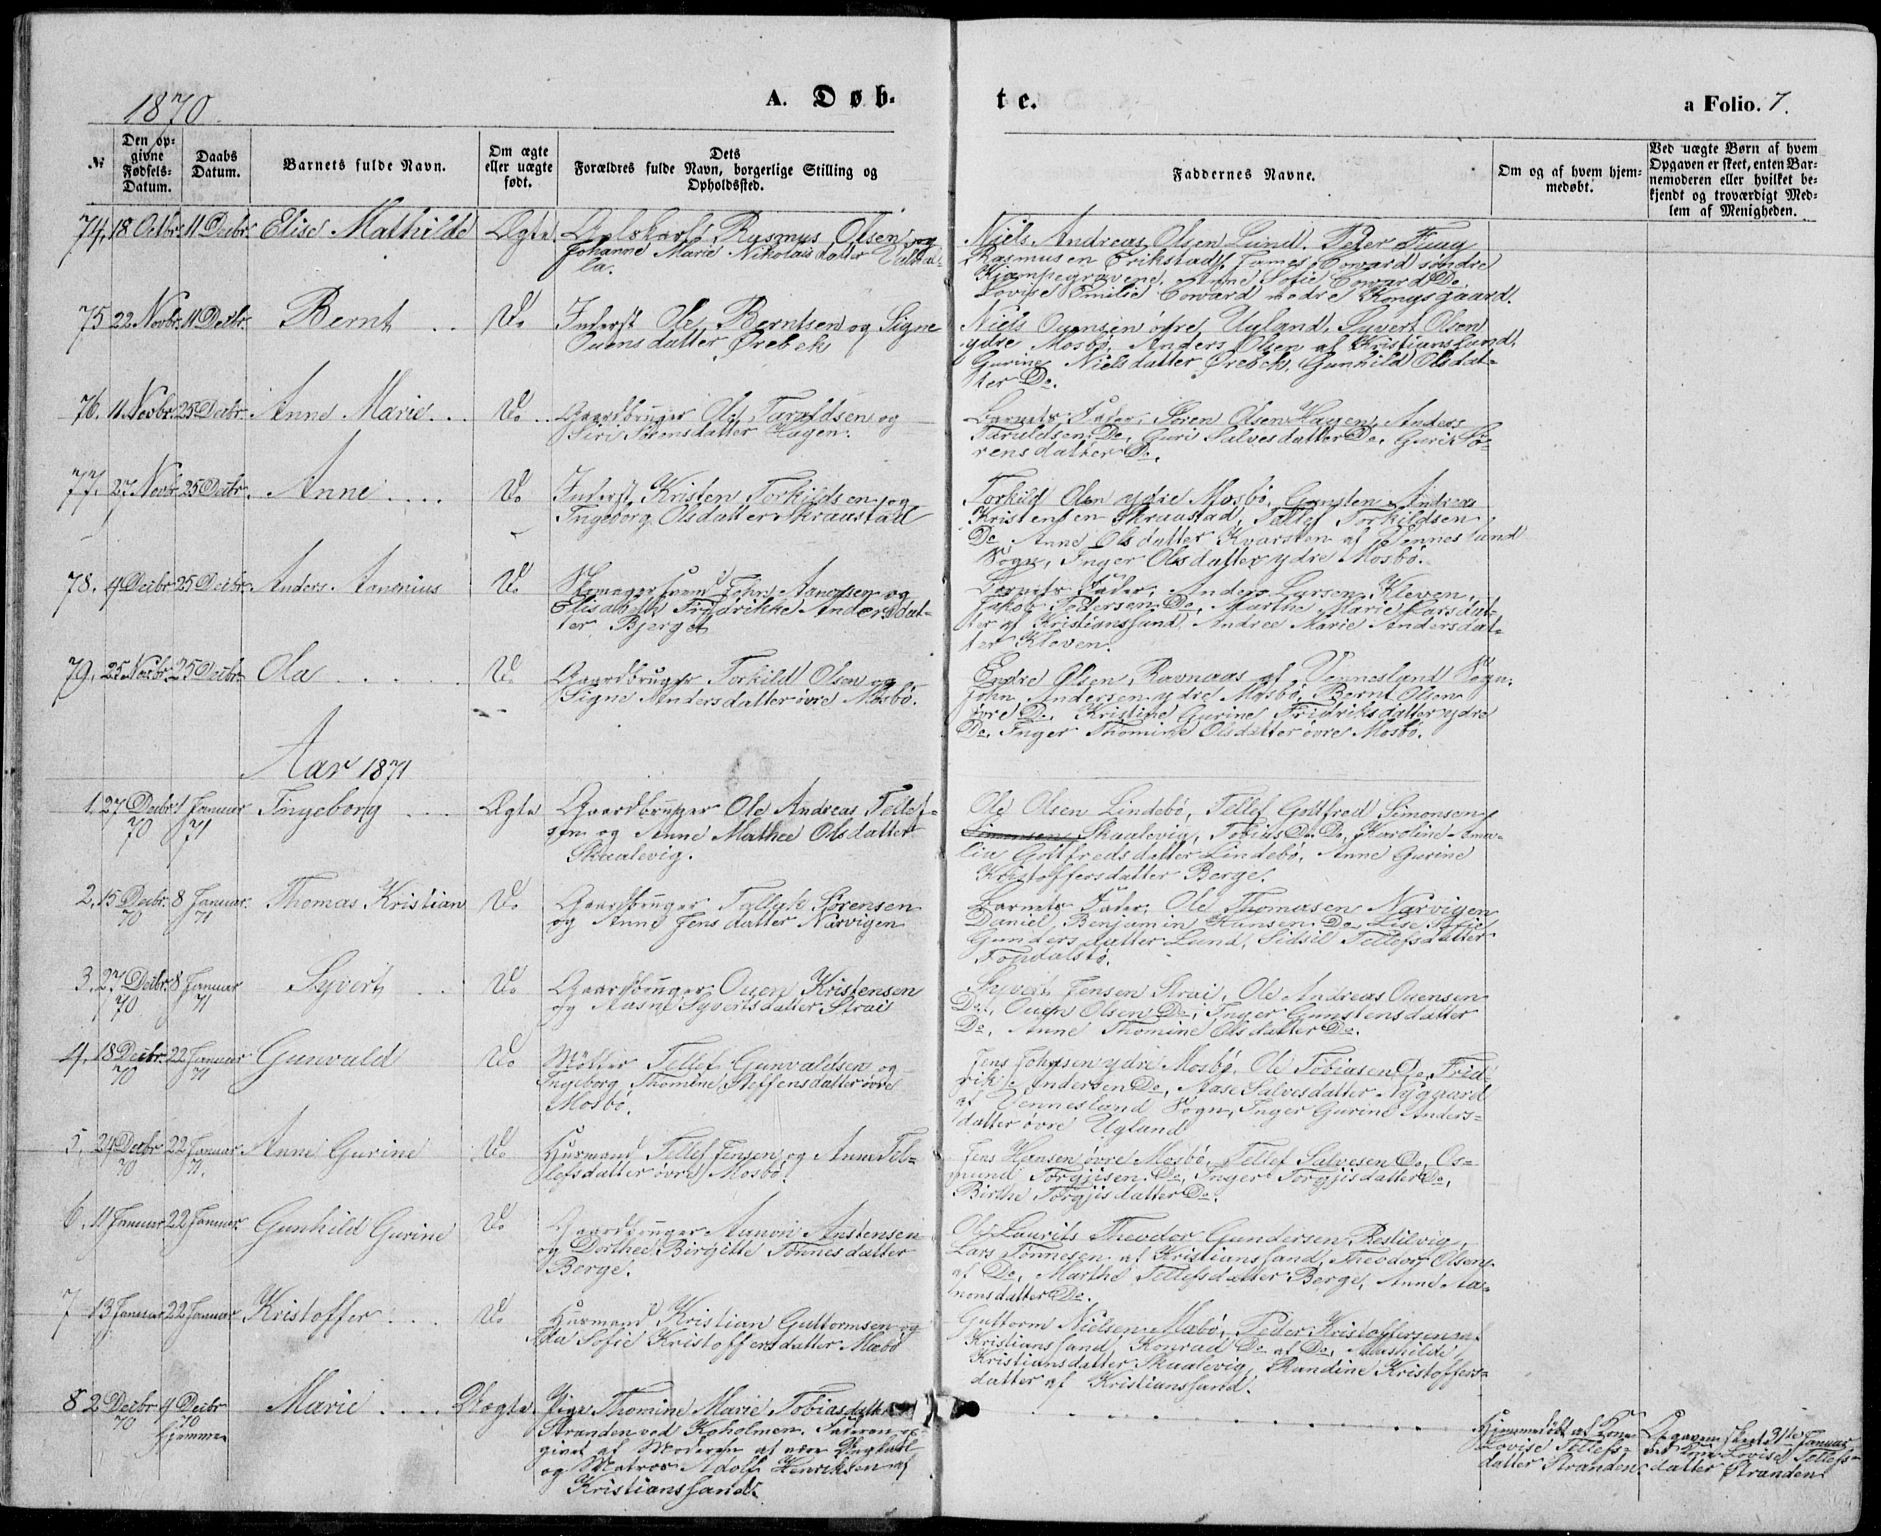 1870.
A. Døb-
te.
a Folio. 7.
№
Den op-
givne
Fødsels-
Datum.
Daabs
Datum.
Barnets fulde Navn.
Om ægte
eller uægte
født.
Dets
Forældres fulde Navn, borgerlige Stilling og
Opholdssted.
Faddernes Navne.
Om og af hvem hjem-
medøbt.
Ved uægte Børn af hvem
Opgaven er skeet, enten Bar-
nemoderen eller hvilket be-
kjendt og troværdigt Med-
lem af Menigheden.
74. 18 Octbr. 11 Decbr. Elise Mathilde Ægte Rasmus Olsen og
Johanne Marie Nikolais datter
Niels Andreas Olsen Lund. Peter
Rasmusen Erikstad, James Coward søndre
Kjæmpegravene, Anne Sofie Coward Do
Lovise Emilie Coward nedre Kongsgaard.
75 22 Novbr. 11 Decbr. Bernt Do Inderst Ole Berntsen og Signe
Ouensdatter Ørebek
Niels Ouensen øvre Ugland, Syvert Olsen
ydre Mosbø, Anders Olsen af Kristianssand,
Gurine Nielsdatter Ørebek, Gunhild Olsdat-
ter Do.
76. 11 Novbr. 25 Decbr. Anne Marie Do Gaardbruger Ole Taraldsen og
Siri Sørensdatter Hagen.
Barnets Fader, Søren Olsen Hagen, Anders
Taraldsen Do, Guri Salvesdatter Do, Guri Sø-
rensdatter Do.
77. 27 Novbr. 25 Decbr. Anne Do Inderst Kristen Torkildsen og
Ingeborg Olsdatter Skraastad
Torkild Olsn ydre Mosbø, Gunsten Andreas
Kristensen Skraastad, Tellef Torkildsen
Do Anne Olsdatter Kvarsten af Vennesland
Sogn, Inger Olsdatter ydre Mosbø.
78. 4 Decbr. 25 Decbr. Anders Antonius Do Skomagersvend John Aanonsen og
Elisabeth Fredrikke Andersdat-
ter Bjerget
Barnets Fader, Anders Larsen Kleven,
Jakob Pedersen Do, Marthe Marie Larsdat-
ter af Kristianssand, Andrea Marie Andersdat-
ter Kleven.
79. 25 Novbr. 25 Decbr. Ola Do Gaardbruger Torkild Olsen og
Signe Andersdatter øvre Mosbø.
Endre Olsen, Ravnaas af Vennesland Sogn,
John Andersen ydre Mosbø, Bernt Olsen
øvre Do, Kristine Gurine Fridriksdatter ydre
Do, Inger Thomine Olsdatter øvre Mosbø.
Aar 1871
1. 27 Decbr. 70 1 Januar 71 Ingeborg Ægte Gaardbruger Ole Andreas Tellef-
sen og Anne Mathea Olsdatter
Skaalevig.
Ole Olsen Lindebø, Tellef Gottfred Simonsen
Simonsen Skaalevig, Tobias Do Do, Karoline Ama-
lia Gottfredsdatter Lindebø, Anne Gurine
Kristoffersdatter Berge.
2. 15 Decbr. 70 8 Januar 71 Thomas Kristian Do Gaardbruger Tallak Sørensen
og Anne Jensdatter Narvigen
Barnets Fader, Ole Thomasen Narvigen
Daniel Benjamin Hansen Do Lise Sofie
Gundersdatter Lund, Sidsil Tellefsdatter
3. 27 Decbr. 70 8 Januar 71 Syvert Do Gaardbruger Ouen Kristensen
og Aasne Syvertsdatter Strai
Syvert Jensen Strai, Ole Andreas Ouensen
Do, Ouen Olsen Do, Inger Gunstensdatter
Do, Anne Thomine Olsdatter Do.
4. 18 Decbr. 70 22 Januar 71 Gunvald Do Møller Tellef Gunvaldsen og
Ingeborg Thomine Steffensdatter øvre
Mosbø.
Jens Johnsen ydre Mosbø, Ole Tobiasen Do, Frid-
rik Andersen Do, Aase Salvesdatter Nygaard
af Vennesland Sogn, Inger Gurine Anders-
datter øvre Ugland
5. 24 Decbr. 70 22 Januar 71. Anne Gurine Do Husmand Tellef Jensen og Anne Tel-
lefsdatter øvre Mosbø.
Jens Hansen øvre Mosbø, Tellef Salvesen Do, Os-
mund Torgjisen Do, Inger Torgjisdatter Do,
Birthe Torgjisdatter Do.
6. 4 Januar 22 Januar Gunhild Gurine Do Gaardbruger Aanon Anstensen
og Dorthea Birgitte Tønnesdatter
Berge.
Ole Laurits Theodor Gundersen Restelvig,
Lars Tønnesen af Kristianssand, Theodor Olsen
af Do, Marthe Tellefsdatter Berge, Anne Aa-
nonsdatter Do.
7 13 Januar 22 Januar Kristoffer Do Husmand Kristian Guttormsen og
Ida Sofie Kristoffersdatter Mæbø
Guttorm Nielsen Mæbø, Peder Kristoffersen af
Kristianssand, Konrad Do af Do, Mathilde
Kristiansdatter Skaalevig, Randine Kristoffers-
datter af Kristianssand.
8 2 Decbr 70 4 Decbr 70 hjemme Marie Uægte Pige Thomine Marie Tobiasdatter
Stranden ved Koholmen. Faderen op-
givet af Moderen at være Ungkarl
og Matros Adolf Henriksen af
Kristianssand.
Hjemmedøbt af Kone
Lovise Tellefs-
datter Stranden.
Opgaven skeet 31te Januar
ved Kone Lovise Tellefs-
datter Stranden